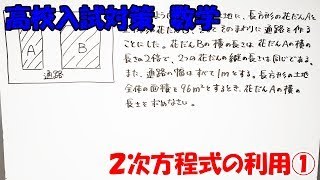 高校入試対策 数学
土地に、長方形の花だんAと
そのまわりに通路を作る
ことにした。花だんBの横の長さは、花だんAの横の
長さの2倍で、2つの花だんの縦の長さは同じである。
また、通路の幅はすべて1mとする。長方形の土地
全体の面積を96m²とするとき、花だんAの横の
長さを求めなさい。
A
B
通路
2次方程式の利用①